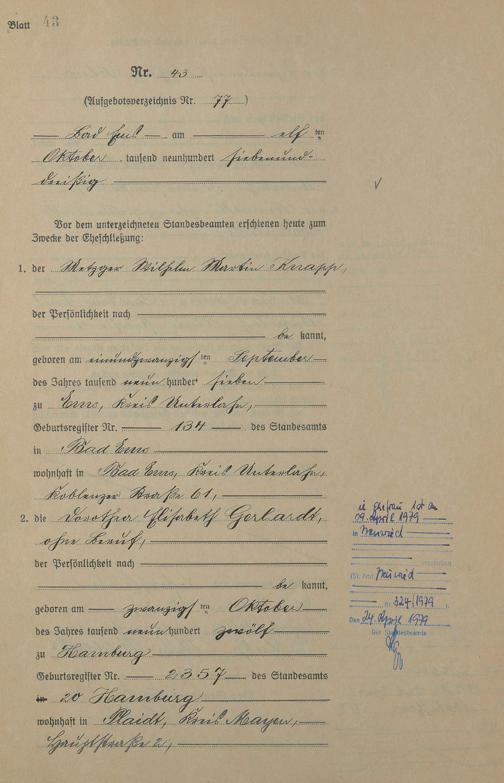 Blatt 43
Nr. 43
(Aufgebotsverzeichnis Nr. 77)
Bad Ems am elf ten
Oktober tausend neunhundert siebenund-
dreißig
Vor dem unterzeichneten Standesbeamten erschienen heute zum
Zwecke der Eheschließung:
1. der Metzger Wilhelm Martin Knapp,
der Persönlichkeit nach
be kannt,
geboren am einundzwanzigs ten September
des Jahres tausend neun hundert sieben
zu Ems, Kreis Unterlahn,
Geburtsregister Nr. 134 des Standesamts
in Bad Ems
wohnhaft in Bad Ems, Kreis Unterlahn,
Koblenzer Straße 61,
2. die Dorothea Elisabeth Gerhardt,
ohne Beruf,
der Persönlichkeit nach
be kannt,
geboren am zwanzigs ten Oktober
des Jahres tausend neun hundert zwölf
zu Hamburg
Geburtsregister Nr. 2357 des Standesamts
in 20 Hamburg
wohnhaft in Plaidt, Kreis Mayen,
Hauptstraße 2,
Ehefrau ist am
09. April 1979
in Neuwied
verstorben
(St. Amt Neuwied
Nr. 324/1979
Den 24. April 1979
Der Standesbeamte